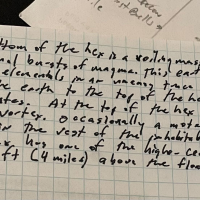 ttom of the hex is a roiling mass
nal bursts of magma. This eart
elementals, in an uneasy truce
he earth to the top of the ho
ates. At the top of the hex
vortex. Occasionally a mota
in the rest of the inhabita
ex has one of the higher-ce
ft (4 miles) above the floo